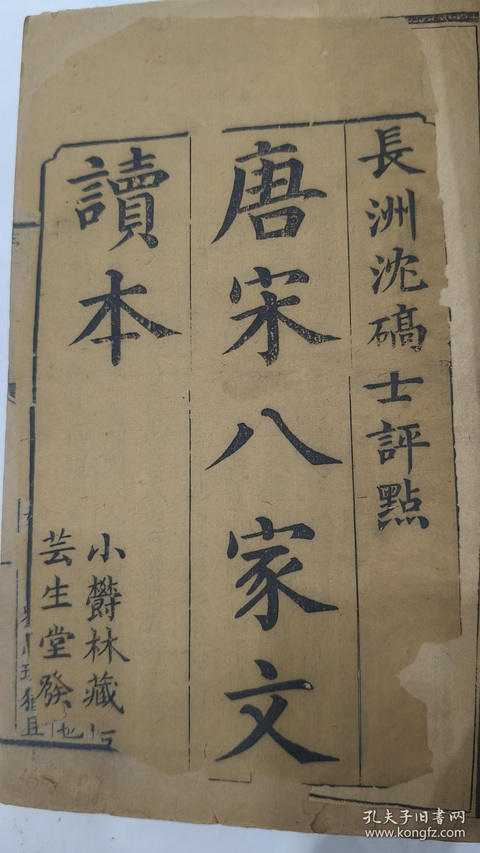 長洲沈碻士評點
唐宋八家文
讀本
小欝林藏
芸生堂發
孔夫子旧书网
www.kongfz.com